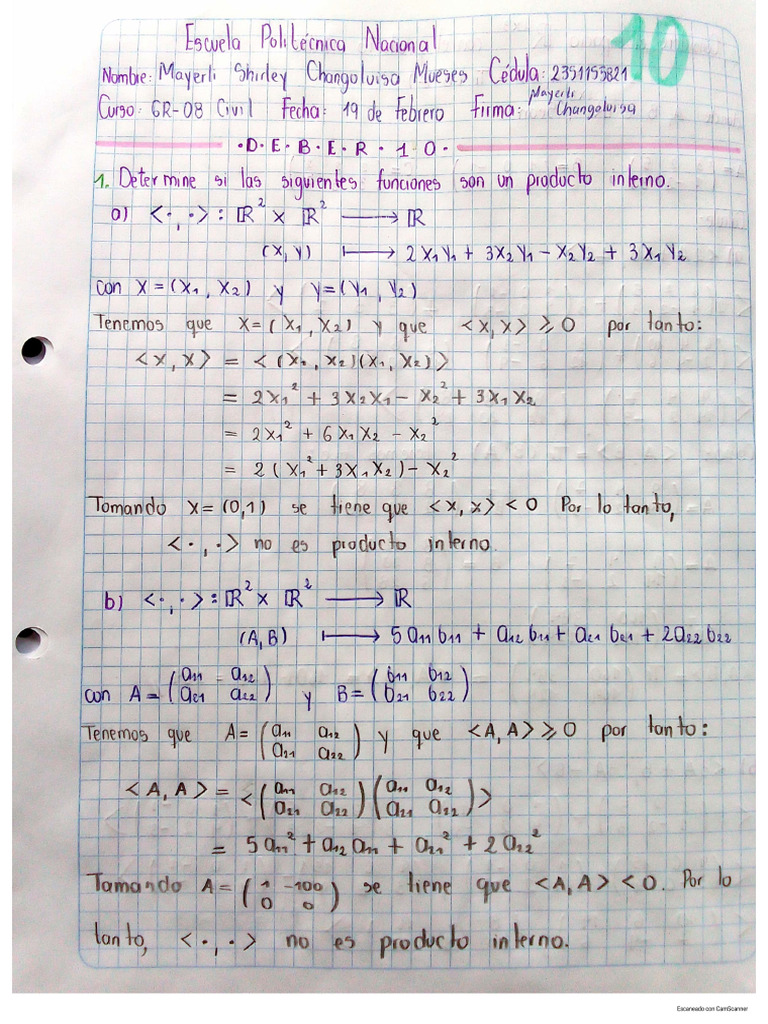 Escuela Politécnica Nacional
10
Nombre: Mayerli Shirley Changoluisa Mueses Cédula: 2351155821
Curso: GR-08 Civil Fecha: 19 de Febrero Firma: Mayerli Changoluisa
·D·E·B·E·R·10·
1. Determine si las siguientes funciones son un producto interno.
a) <·,·> : ℝ² × ℝ² ⟶ ℝ
(x, y) ⟼ 2x₁y₁ + 3x₂y₁ − x₂y₂ + 3x₁y₂
con x = (x₁, x₂) y y = (y₁, y₂)
Tenemos que x = (x₁, x₂) y que <x, x> ⩾ 0 por tanto:
<x, x> = <(x₁, x₂)(x₁, x₂)>
= 2x₁² + 3x₂x₁ − x₂² + 3x₁x₂
= 2x₁² + 6x₁x₂ − x₂²
= 2(x₁² + 3x₁x₂) − x₂²
Tomando x = (0,1) se tiene que <x, x> < 0 Por lo tanto,
<·,·> no es producto interno.
b) <·,·> : ℝ² × ℝ² ⟶ ℝ
(A, B) ⟼ 5a₁₁b₁₁ + a₁₂b₁₁ + a₂₁b₂₁ + 2a₂₂b₂₂
con A = (a₁₁ a₁₂ / a₂₁ a₂₂) y B = (b₁₁ b₁₂ / b₂₁ b₂₂)
Tenemos que A = (a₁₁ a₁₂ / a₂₁ a₂₂) y que <A, A> ⩾ 0 por tanto:
<A, A> = <(a₁₁ a₁₂ / a₂₁ a₂₂)(a₁₁ a₁₂ / a₂₁ a₂₂)>
= 5a₁₁² + a₁₂a₁₁ + a₂₁² + 2a₂₂²
Tamando A = (1 −100 / 0 0) se tiene que <A, A> < 0. Por lo
tanto, <·,·> no es producto interno.
Escaneado con CamScanner